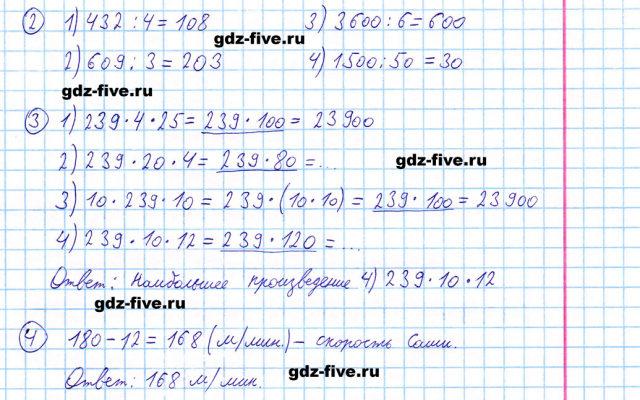 2 1) 432 : 4 = 108 3) 3600 : 6 = 600
gdz-five.ru
2) 609 : 3 = 203 4) 1500 : 50 = 30
gdz-five.ru
3 1) 239 · 4 · 25 = 239 · 100 = 23900
2) 239 · 20 · 4 = 239 · 80 = ... gdz-five.ru
3) 10 · 239 · 10 = 239 · (10 · 10) = 239 · 100 = 23900
4) 239 · 10 · 12 = 239 · 120 = ...
Ответ: Наибольшее произведение 4) 239 · 10 · 12
gdz-five.ru
4 180 - 12 = 168 (м/мин.) - скорость Саши.
Ответ: 168 м/мин. gdz-five.ru